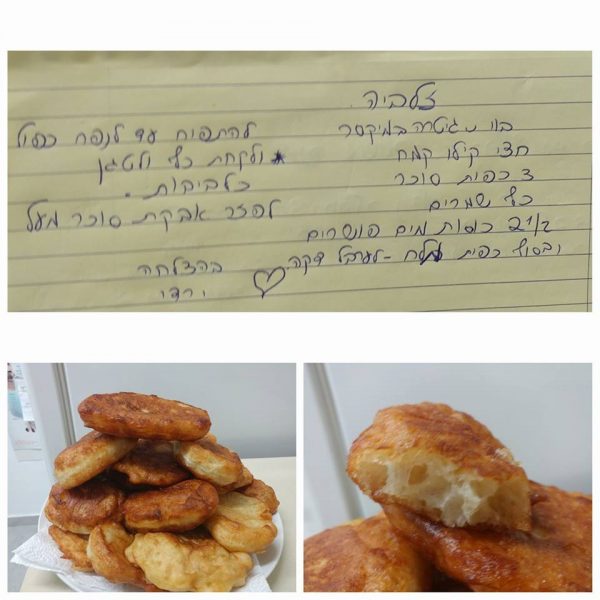 צלביה.
בוו גיטרה במיקסר
חצי קילו קמח
כפית סוכר
כף שמרים
2 1/2 כוסות מים פושרים
ובסוף כפית מלח - לערבל דקה.
להתפיח עד לנפח כפול
* ולקחת כף ולטגן
כלביבות.
לפזר אבקת סוכר מעל
בהצלחה
ורדי